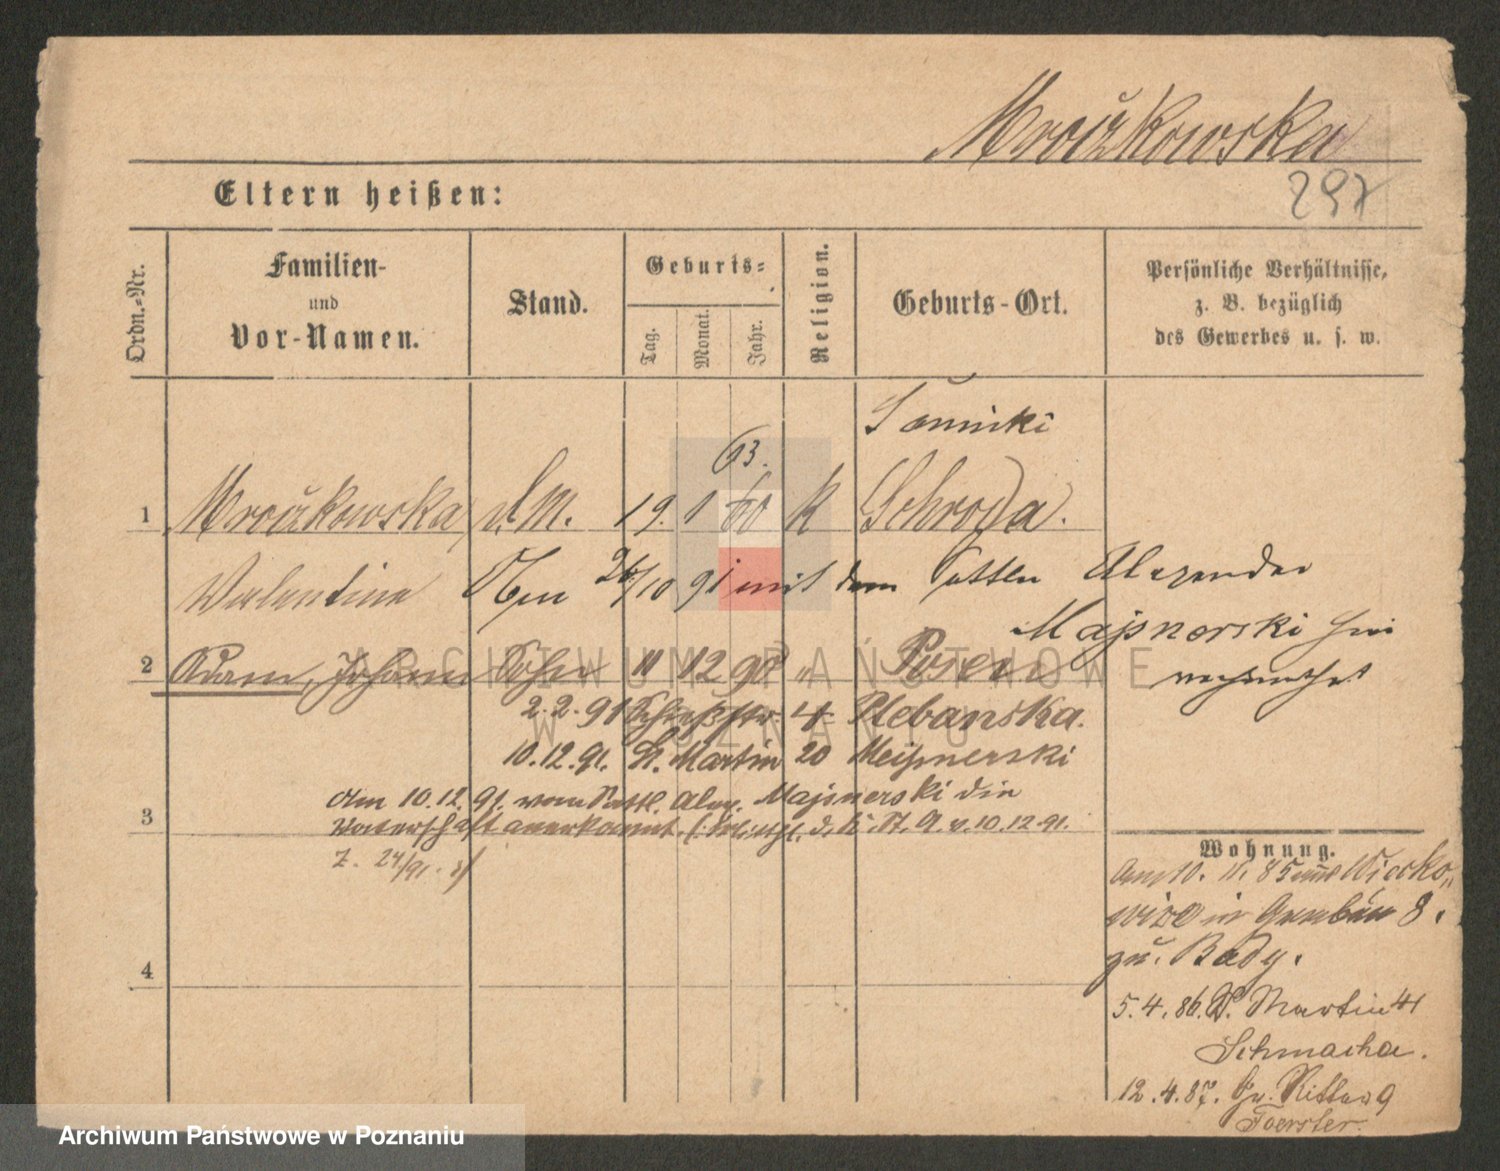 Mroczkowska
297
Eltern heißen:
Ordn.-Nr.
Familien-
und
Vor-Namen.
Stand.
Geburts-
Tag.
Monat.
Jahr.
Religion.
Geburts-Ort.
Persönliche Verhältnisse,
z. B. bezüglich
des Gewerbes u. s. w.
63.
1 Mroczkowska d. M. 19. 1 60 K (Schroda).
Valentine
26/10 91 mit dem Alexander
Majsnerski
2 Adam, Johann Sohn 11 12 90 " Posen
2.2.91 Schießstr. 4. Plebanska.
10.12.91. St. Martin 20 Meissnerski
Am 10.12.91. vom Alex. Majsnerski die
3 Vaterschaft anerkannt. 10.12.91.
24/91.
4
Wohnung.
Am 10. 11. 85
in 8.
zu.
5.4.86. St. Martin 41
Schmacha.
12.4.87. Gr. Ritter 9
Foerster.
ARCHIWUM PAŃSTWOWE
W POZNANIU
Archiwum Państwowe w Poznaniu